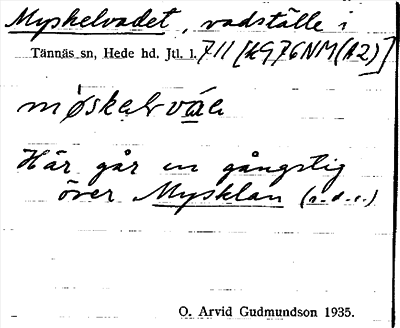 Myskelvadet, vadställe i
Tännäs sn, Hede hd. Jtl. l. 711 [HG76NM(A2)]
møskəlváa
Här går en gångstig
över Mysklan (s.d.o.)
O. Arvid Gudmundson 1935.